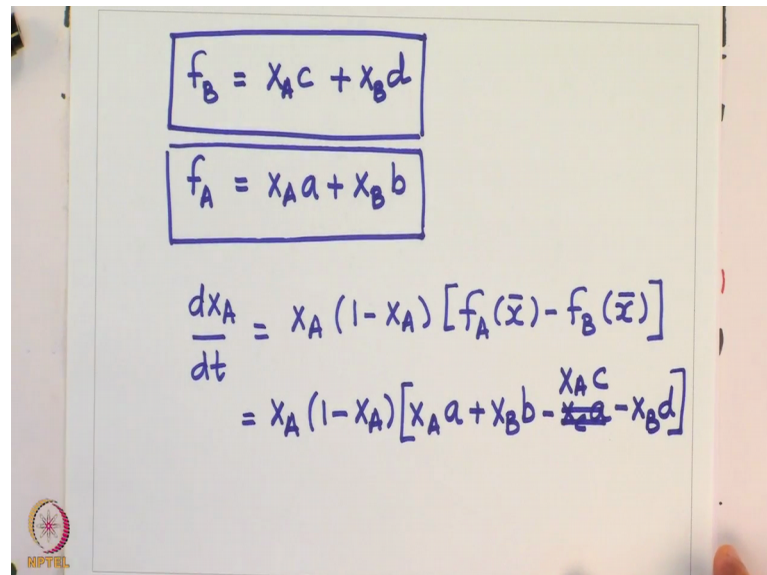 f_B = x_A c + x_B d
f_A = x_A a + x_B b
dx_A/dt = x_A (1 - x_A) [f_A(x̄) - f_B(x̄)]
= x_A (1 - x_A) [x_A a + x_B b - x_A c - x_B d]
NPTEL